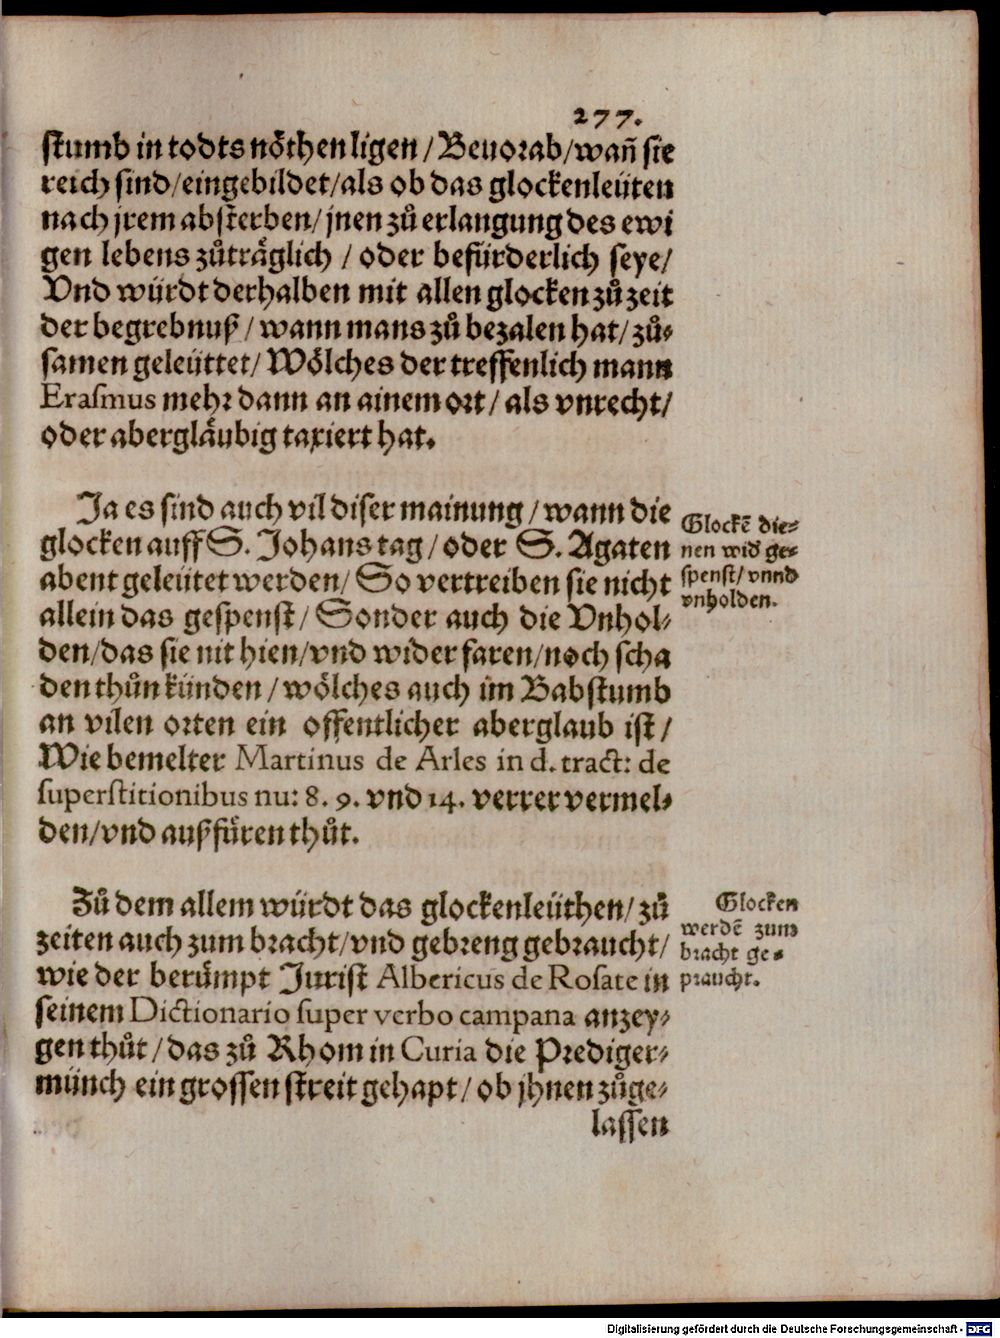 277.
stumb in todts nőthen ligen / Beuorab/wañ sie
reich sind/eingebildet/als ob das glockenleüten
nach jrem absterben/ jnen zů erlangung des ewi
gen lebens zůträglich / oder befürderlich seye/
Vnd würdt derhalben mit allen glocken zů zeit
der begrebnuß / wann mans zů bezalen hat/ zů⸗
samen geleüttet/ Wölches der treffenlich mann
Erasmus mehr dann an ainem ort / als vnrecht/
oder abergläubig taxiert hat.
Ja es sind auch vil diser mainung / wann die
glocken auff S. Johans tag / oder S. Agaten
abent geleütet werden/ So vertreiben sie nicht
allein das gespenst / Sonder auch die Vnhol⸗
den/das sie nit hien/vnd wider faren/noch scha
den thůn künden / wölches auch im Babstumb
an vilen orten ein offentlicher aberglaub ist /
Wie bemelter Martinus de Arles in d. tract: de
superstitionibus nu: 8. 9. vnd 14. verrer vermel⸗
den/vnd außfüren thůt.
Glockē die⸗
nen wid ge⸗
spenst/ vnnd
vnholden.
Zů dem allem würdt das glockenleüthen/ zů
zeiten auch zum bracht/vnd gebreng gebraucht/
wie der berümpt Jurist Albericus de Rosate in
seinem Dictionario super verbo campana anzey⸗
gen thůt / das zů Rhom in Curia die Prediger⸗
münch ein grossen streit gehapt / ob jhnen zůge⸗
lassen
Glocken
werdē zum
bracht ge⸗
praucht.
Digitalisierung gefördert durch die Deutsche Forschungsgemeinschaft - DFG